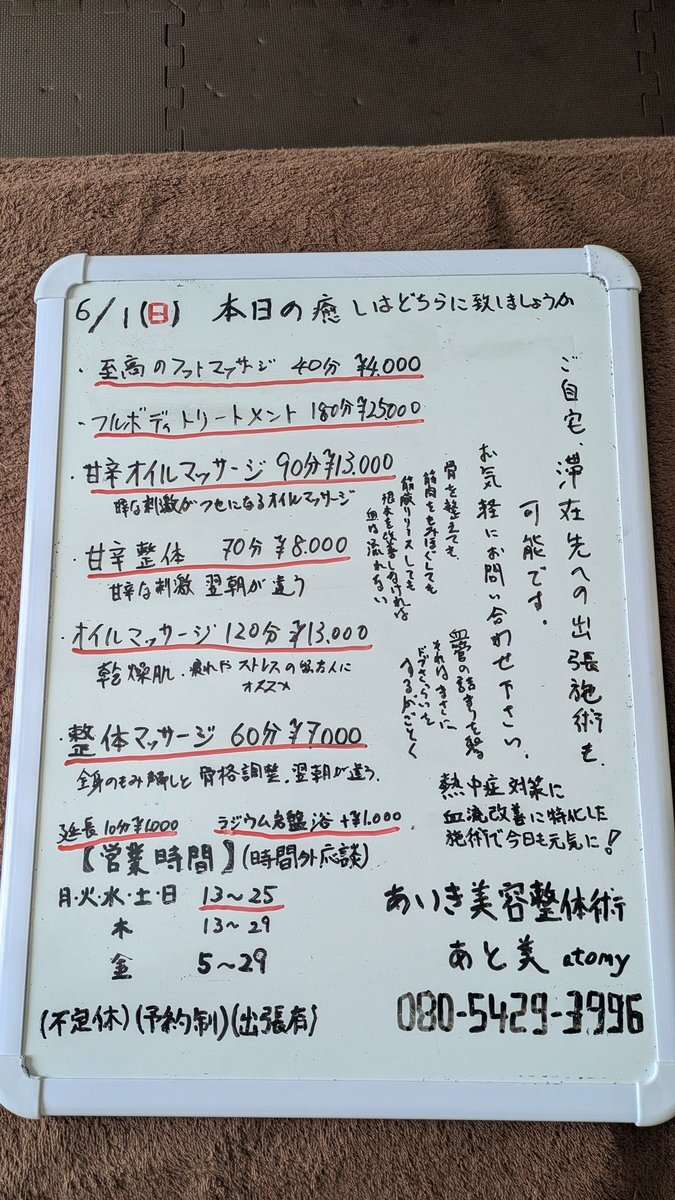 6/1(日) 本日の癒しはどちらに致しましょうか
・至高のフットマッサージ 40分 ¥4,000
・フルボディトリートメント 180分¥25000
・甘辛オイルマッサージ 90分¥13,000
な刺激がクセになるオイルマッサージ
・甘辛整体 70分 ¥8.000
甘辛な刺激 翌朝が違う
・オイルマッサージ 120分 ¥13,000
乾燥肌・疲れやストレスの方に
オススメ
・整体マッサージ 60分 ¥7000
全身のもみ解しと骨格調整。翌朝が違う。
延長10分¥1,000 ラジウム岩盤浴+¥1,000
【営業時間】(時間外応談)
月・火・水・土・日 13~25
木 13~29
金 5~29
(不定休)(予約制)(出張有)
ご自宅、滞在先への出張施術も
可能です。
お気軽にお問い合わせ下さい。
骨を整えても、
筋肉をもみほぐしても
筋膜リリースしても
根本を改善しなければ
血は流れない
血管の詰まりを
それはまさに
ドブさらいを
するがごとく
熱中症対策に
血流改善に特化した
施術で今日も元気に!
あいき美容整体術
あと美 atomy
080-5429-3996